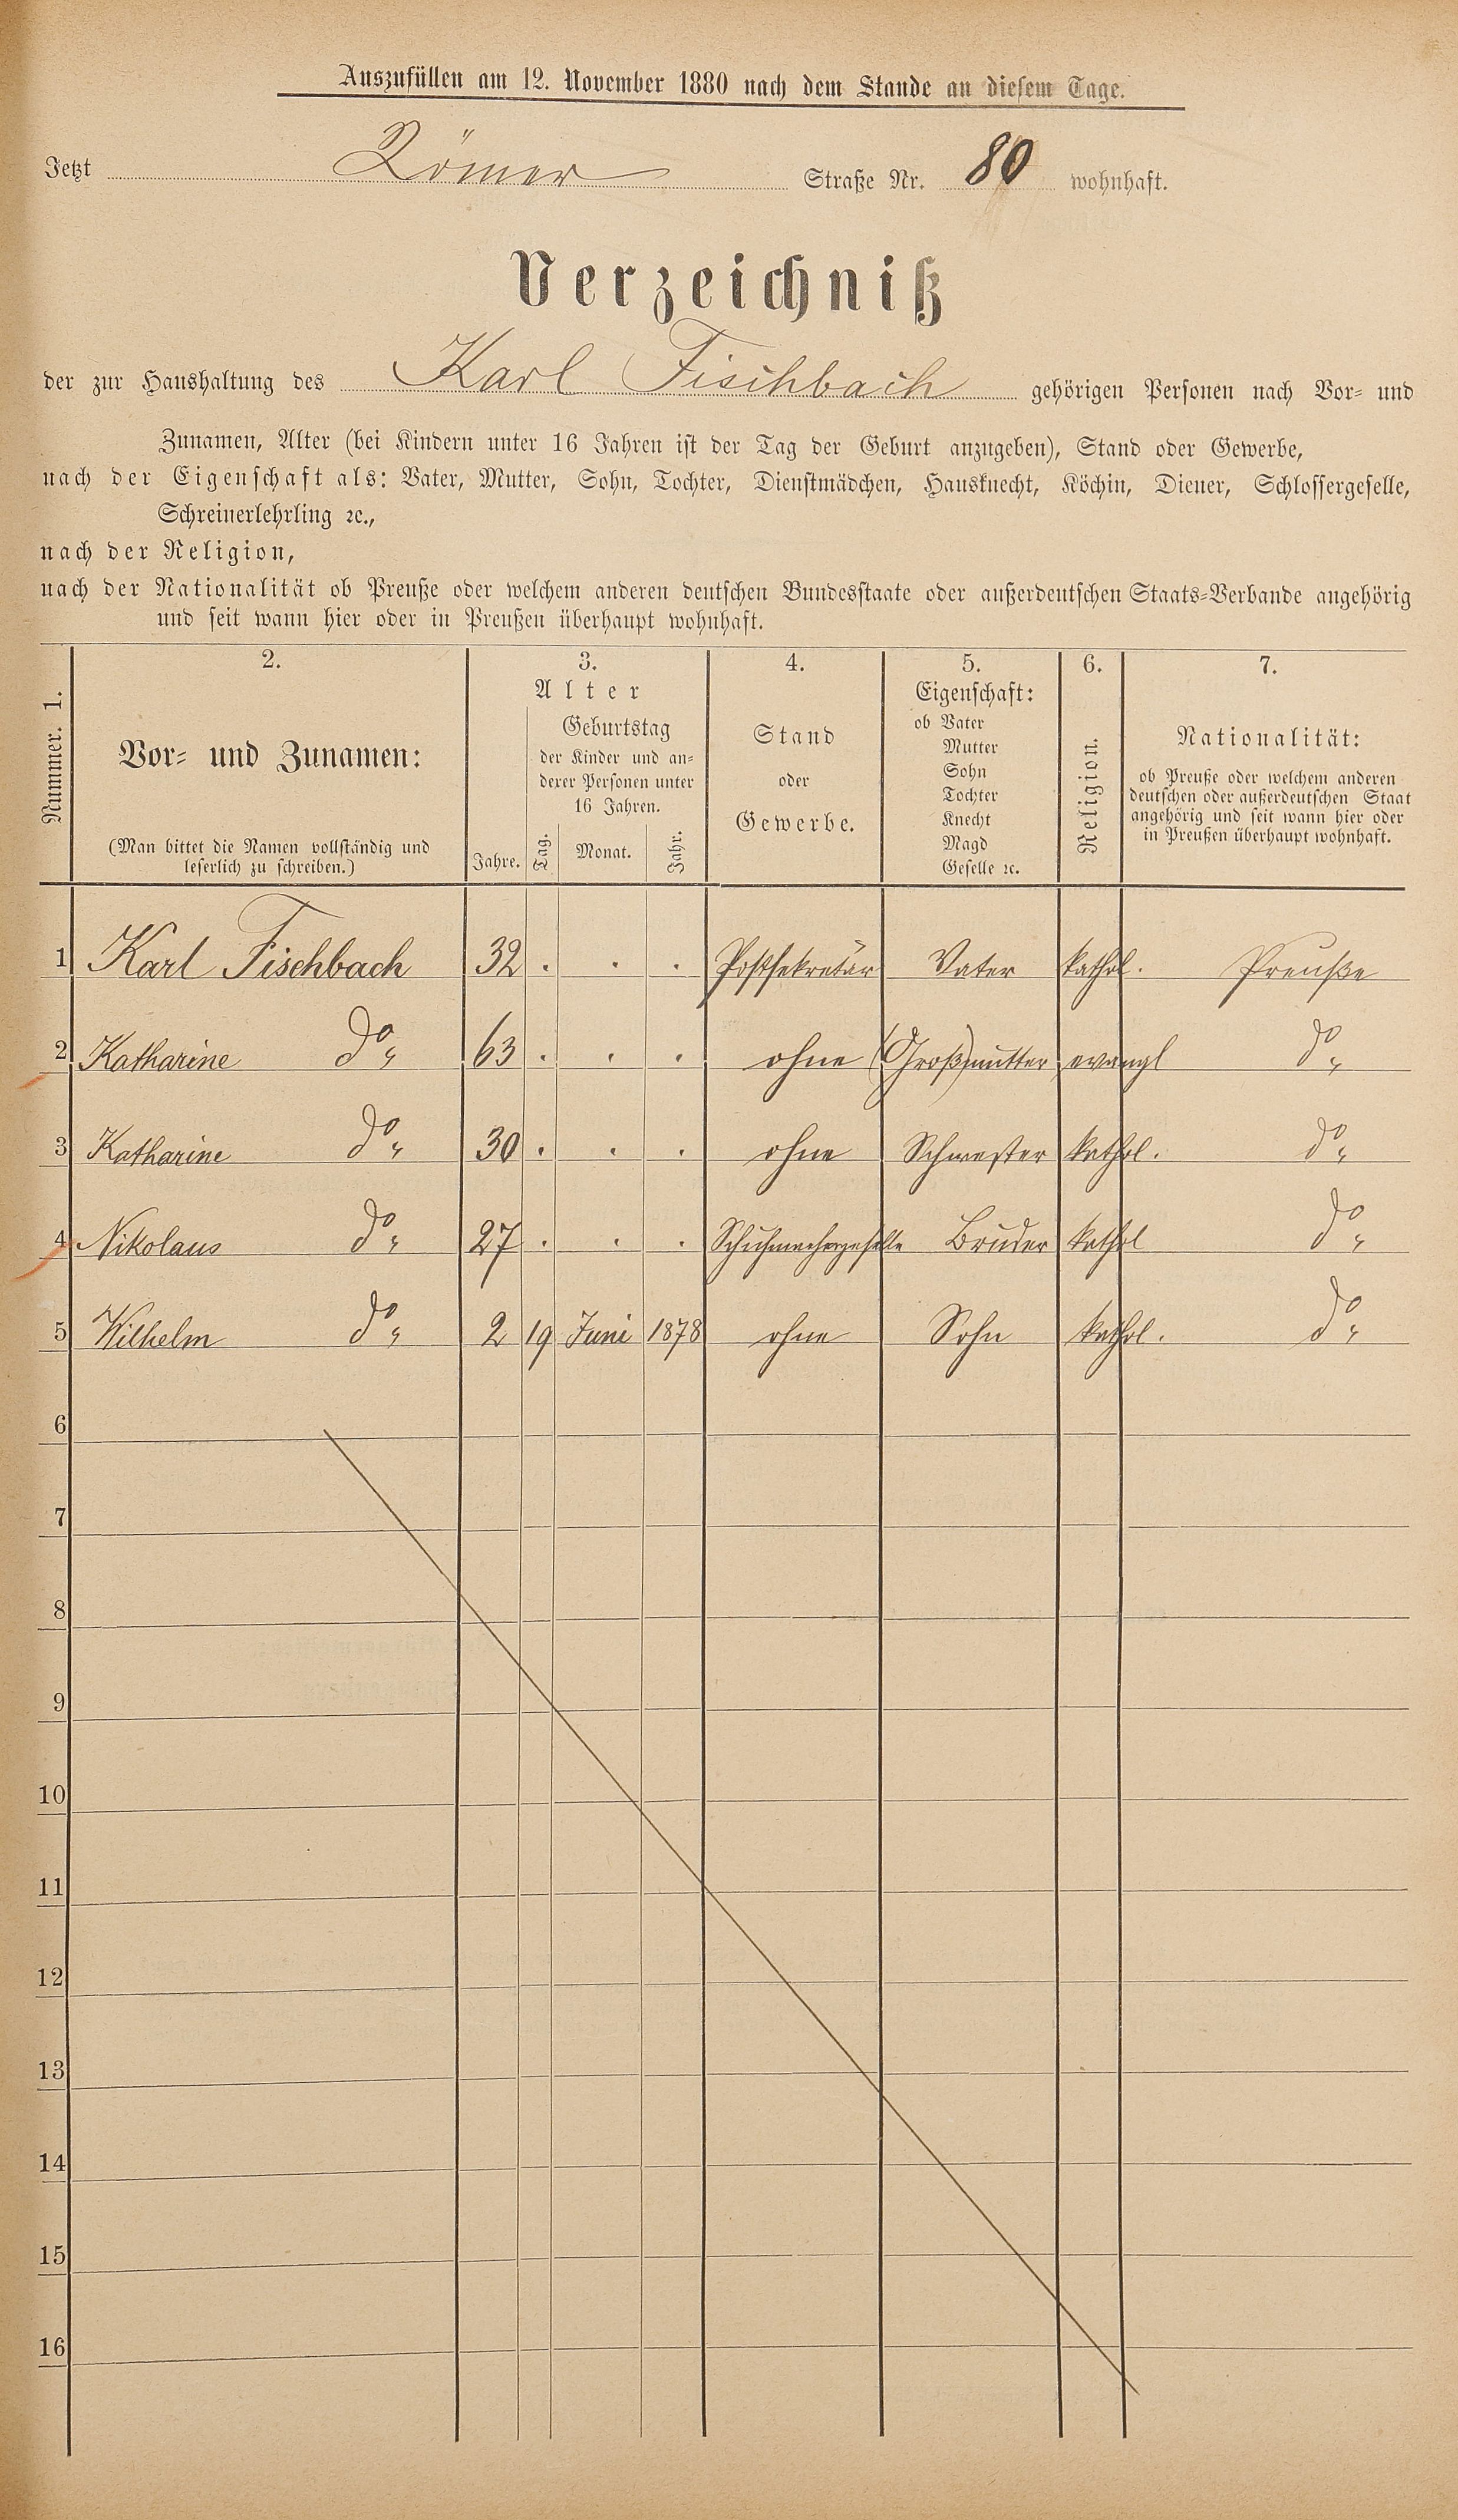 Auszufüllen am 12. November 1880 nach dem Stande an diesem Tage.
Jetzt Römer Straße Nr. 80 wohnhaft.
Verzeichniß
der zur Haushaltung des Karl Fischbach gehörigen Personen nach Vor- und
Zunamen, Alter (bei Kindern unter 16 Jahren ist der Tag der Geburt anzugeben), Stand oder Gewerbe,
nach der Eigenschaft als: Vater, Mutter, Sohn, Tochter, Dienstmädchen, Hausknecht, Köchin, Diener, Schlossergeselle,
Schreinerlehrling ꝛc.,
nach der Religion,
nach der Nationalität ob Preuße oder welchem anderen deutschen Bundesstaate oder außerdeutschen Staats-Verbande angehörig
und seit wann hier oder in Preußen überhaupt wohnhaft.
Nummer. 1.
2.
Vor- und Zunamen:
(Man bittet die Namen vollständig und
leserlich zu schreiben.)
3.
Alter
Jahre.
Geburtstag
der Kinder und an-
derer Personen unter
16 Jahren.
Tag. Monat. Jahr.
4.
Stand
oder
Gewerbe.
5.
Eigenschaft:
ob Vater
Mutter
Sohn
Tochter
Knecht
Magd
Geselle ꝛc.
6.
Religion.
7.
Nationalität:
ob Preuße oder welchem anderen
deutschen oder außerdeutschen Staat
angehörig und seit wann hier oder
in Preußen überhaupt wohnhaft.
1 Karl Fischbach 32 . . . Postsekretär Vater kathol. Preuße
2 Katharine do " 63 . . . ohne (Groß)mutter evangl do "
3 Katharine do " 30 . . . ohne Schwester kathol. do "
4 Nikolaus do " 27 . . . Schuhmachergeselle Bruder kathol do "
5 Wilhelm do " 2 19 Juni 1878 ohne Sohn kathol. do "
6
7
8
9
10
11
12
13
14
15
16